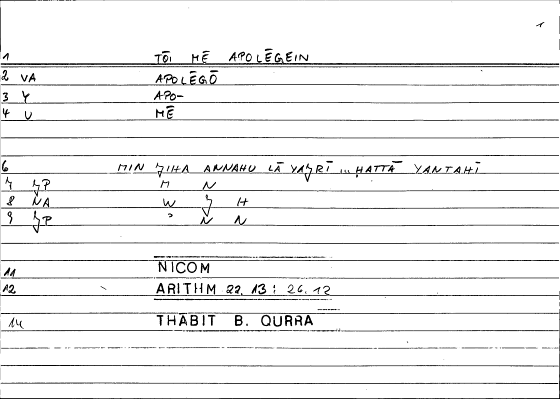 1
1 TŌI MĒ APOLĒGEIN
2 VA APOLĒGŌ
3 Y APO-
4 U MĒ
6 MIN ǮIHA ANNAHU LĀ YAǮRĪ ... ḤATTĀ YANTAHĪ
7 ǮP M N
8 NA W Ǯ H
9 ǮP ʾ N N
11 NICOM
12 ARITHM 22, 13 : 26, 12
14 THĀBIT B. QURRA